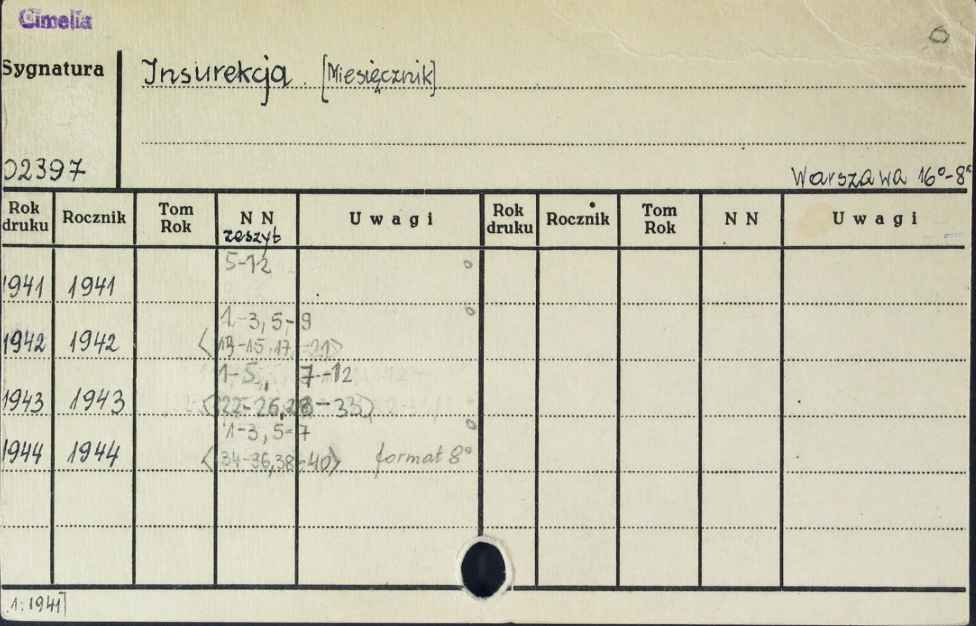 Cimelia
Sygnatura
Insurekcja. [Miesięcznik]
02397
Warszawa 16°-8°
Rok druku Rocznik Tom Rok N N zeszyt U w a g i Rok druku Rocznik Tom Rok N N U w a g i
1941 1941 5-12
1942 1942 1-3, 5-9
<13-15, 17, -21>
1943 1943 1-5, 7-12
<22-26, 28-33>
1944 1944 1-3, 5-7
<34-36, 38-40> format 8°
1: 1941]